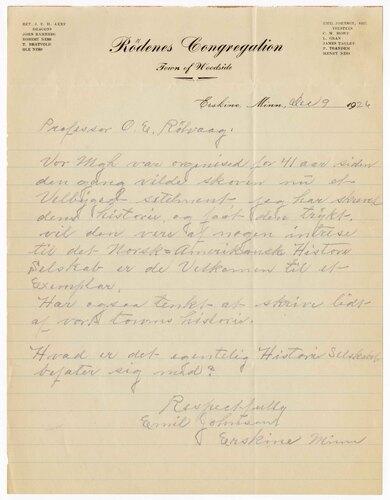 REV. J. T. H.
DEACONS
JOHN RAMBERG
ROBERT NESS
T. BRATVOLD
OLE NESS
EMIL JOHNSON, SEC.
TRUSTEES
C. M. MOEN
L. GRAN
JAMES TASLEY
P. TRANDEM
HENRY NESS
Rödenes Congregation
Town of Woodside
Erskine, Minn., Dec 9 1926
Professor O. E. Rölvaag:
Vor Mgh var organised for 41 aar siden
den gang vilde skoven nu et
Velbÿget setelment. jeg har skrevet
dens historie, og faat den trykt.
vil den vere af nogen intrese
til det Norsk=Amerikansk Histori
Selskab er de Velkomen til et
Exemplar.
Har ogsaa tenkt at skrive lidt
af vor towns historie.
Hvad er det egentelig Historie Selskabet
befater sig med?
Respectfully
Emil Johnson
Erskine Minn